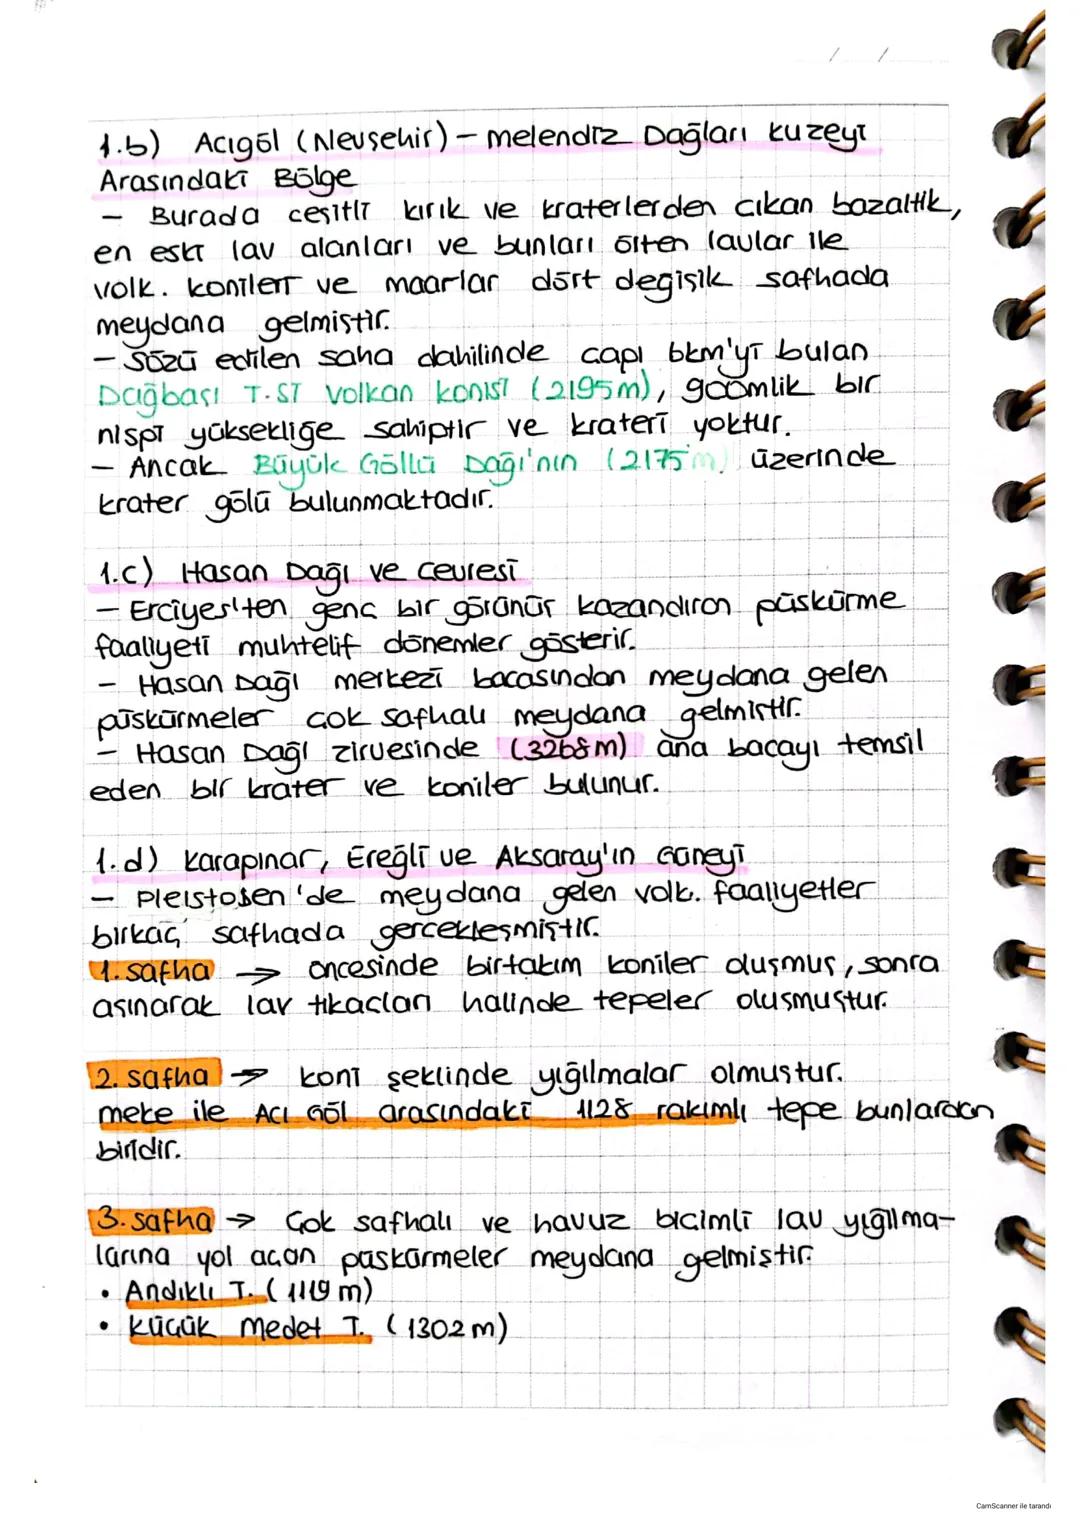 / /
1.b) Acıgöl (Nevşehir) – Melendiz Dağları kuzeyi
Arasındaki Bölge
– Burada çeşitli kırık ve kraterlerden çıkan bazaltik,
en eski lav alanları ve bunları örten lavlar ile
volk. konileri ve maarlar dört değişik safhada
meydana gelmiştir.
– Sözü edilen saha dahilinde çapı 6km'yi bulan
Dağbaşı T.si volkan konisi (2195m), 900mlik bir
nispi yüksekliğe sahiptir ve krateri yoktur.
– Ancak Büyük Göllü Dağı'nın (2175 m) üzerinde
krater gölü bulunmaktadır.
1.c) Hasan Dağı ve Çevresi
– Erciyes'ten genç bir görünüş kazandıran püskürme
faaliyeti muhtelif dönemler gösterir.
– Hasan Dağı merkezi bacasından meydana gelen
püskürmeler çok safhalı meydana gelmiştir.
– Hasan Dağı zirvesinde (3268m) ana bacayı temsil
eden bir krater ve koniler bulunur.
1.d) Karapınar, Ereğli ve Aksaray'ın Güneyi
– Pleistosen'de meydana gelen volk. faaliyetler
birkaç safhada gerçekleşmiştir.
1. safha → öncesinde birtakım koniler oluşmuş, sonra
aşınarak lav tıkaçları halinde tepeler oluşmuştur.
2. safha → koni şeklinde yığılmalar olmuştur.
meke ile Acı Göl arasındaki 1128 rakımlı tepe bunlardan
biridir.
3. safha → Çok safhalı ve havuz biçimli lav yığılma-
larına yol açan püskürmeler meydana gelmiştir.
• Andıklı T. (1119 m)
• Küçük Medet T. (1302 m)
CamScanner ile tarandı